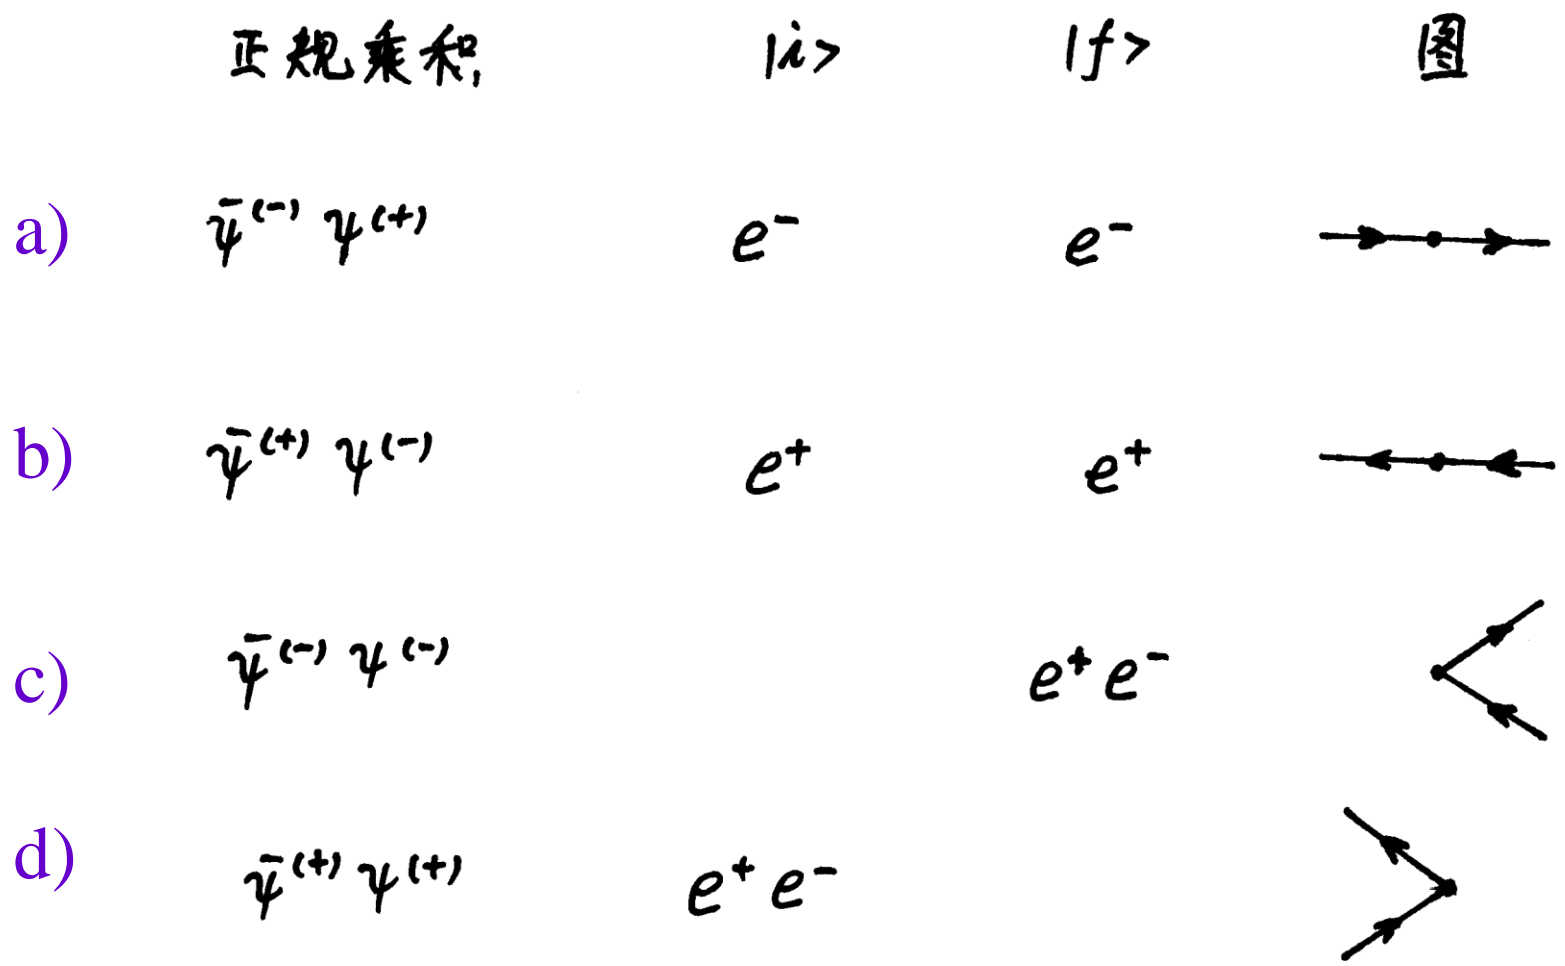 正规乘积 |i> |f> 图
a) ψ̄⁽⁻⁾ ψ⁽⁺⁾ e⁻ e⁻
b) ψ̄⁽⁺⁾ ψ⁽⁻⁾ e⁺ e⁺
c) ψ̄⁽⁻⁾ ψ⁽⁻⁾ e⁺ e⁻
d) ψ̄⁽⁺⁾ ψ⁽⁺⁾ e⁺ e⁻